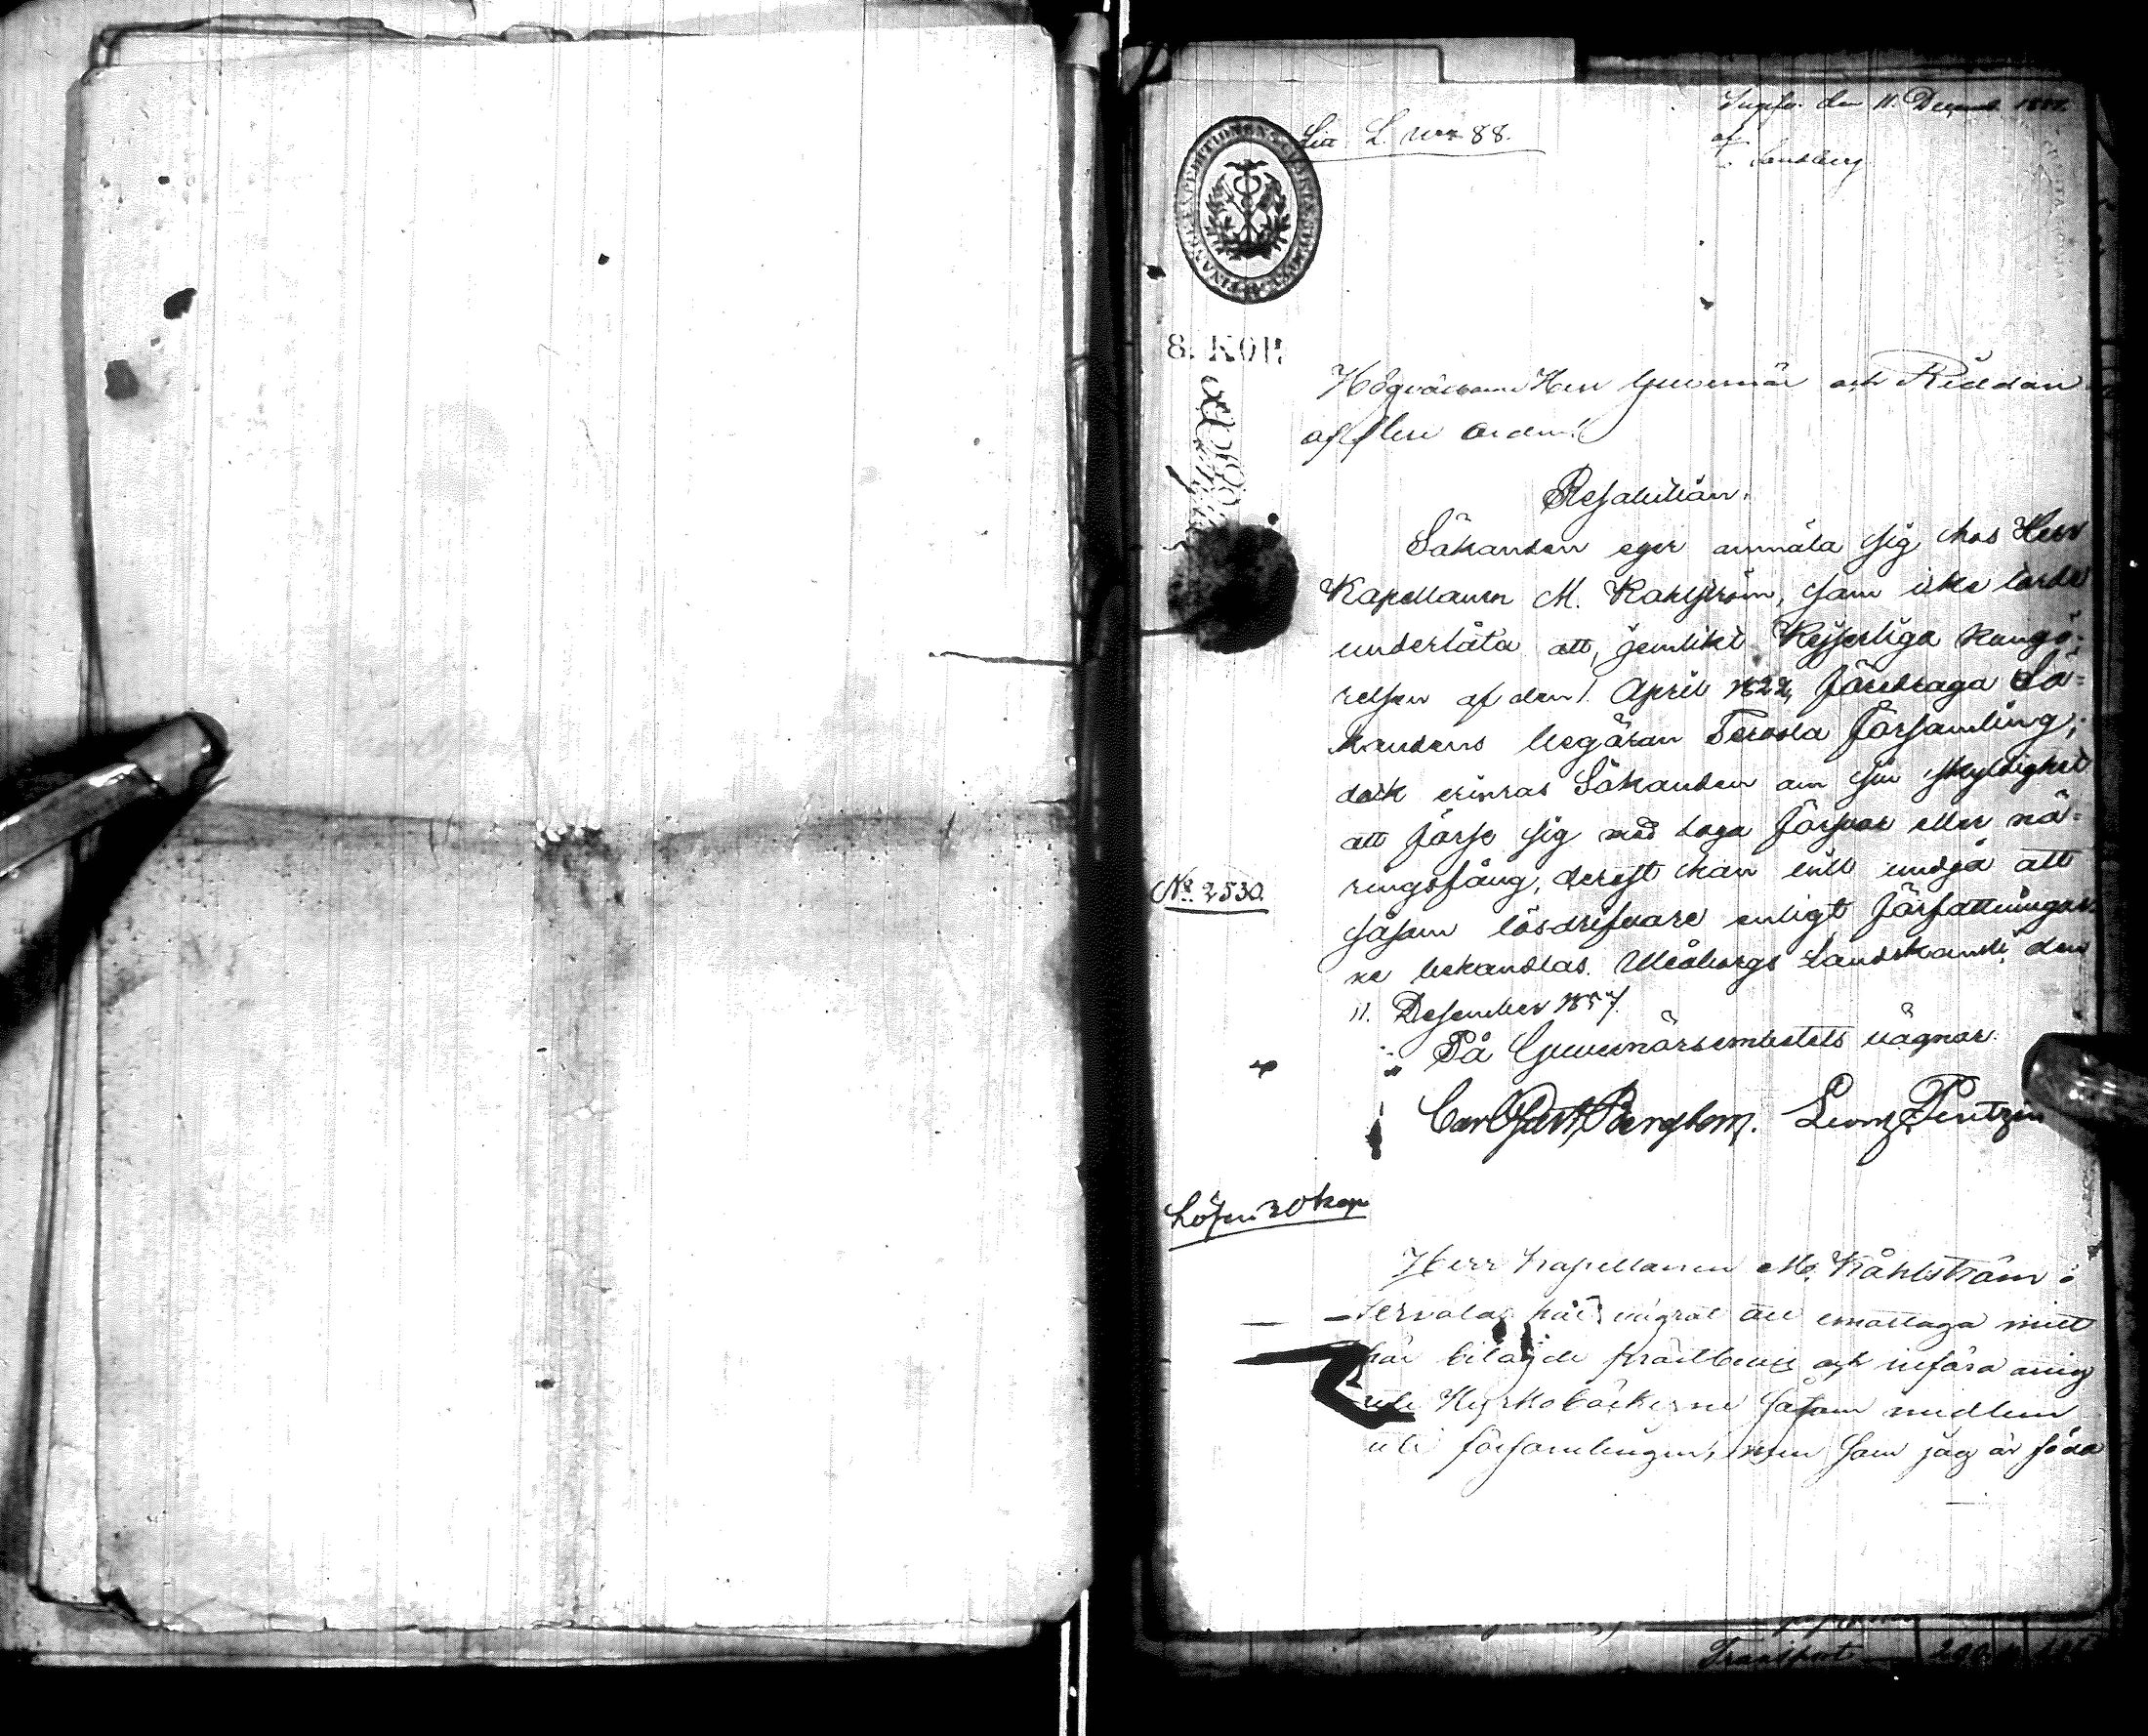 Litt. L. No 88.
Ingifv. den 11. Decemb. 1857.
af
Sandberg
8. KOP.
Högvälborne Herr Guvernör och Riddare
af flere Orden!
Resolution.
Sökanden eger anmäla sig hos Herr
Kapellanen M. Kahlström, som icke torde
underlåta att, jemlikt Kejserliga Kungö-
relsen af den 1. April 1822, föredraga Sö-
kandens begäran Tervola Församling;
dock erinras Sökanden om sin skyldighet
att förse sig med laga försvar eller nä-
ringsfång, derest han vill undgå att
såsom lösdrifvare enligt författningar-
ne behandlas. Uleåborgs Landskansli den
11. December 1857.
På Guvernörsembetets vägnar:
Carl Gust. Bergbom. Georg Pentzin
No 2530.
Lösen 20 kop
Herr Kapellanen M. Kåhlström i
Tervola har vägrat att emottaga mitt
här bilagde prästbevis och införa mig
uti Kyrkoböckerne såsom medlem
uti församlingen, men som jag är född
Transport